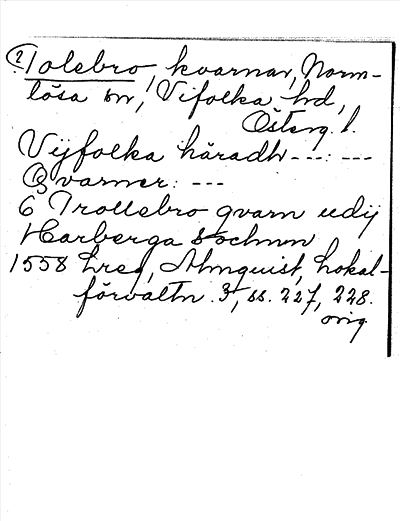 2 Tolebro, kvarnar, Norm-
lösa sn, Vifolka hd,
Österg. l.
Vijfolka häradh ---: ---
Qvarner: ---
6 Trollebro qvarn udij
Harberga Sochnn
1558 Lreg, Almquist, Lokal-
förvaltn. 3, ss. 227, 228.
orig.